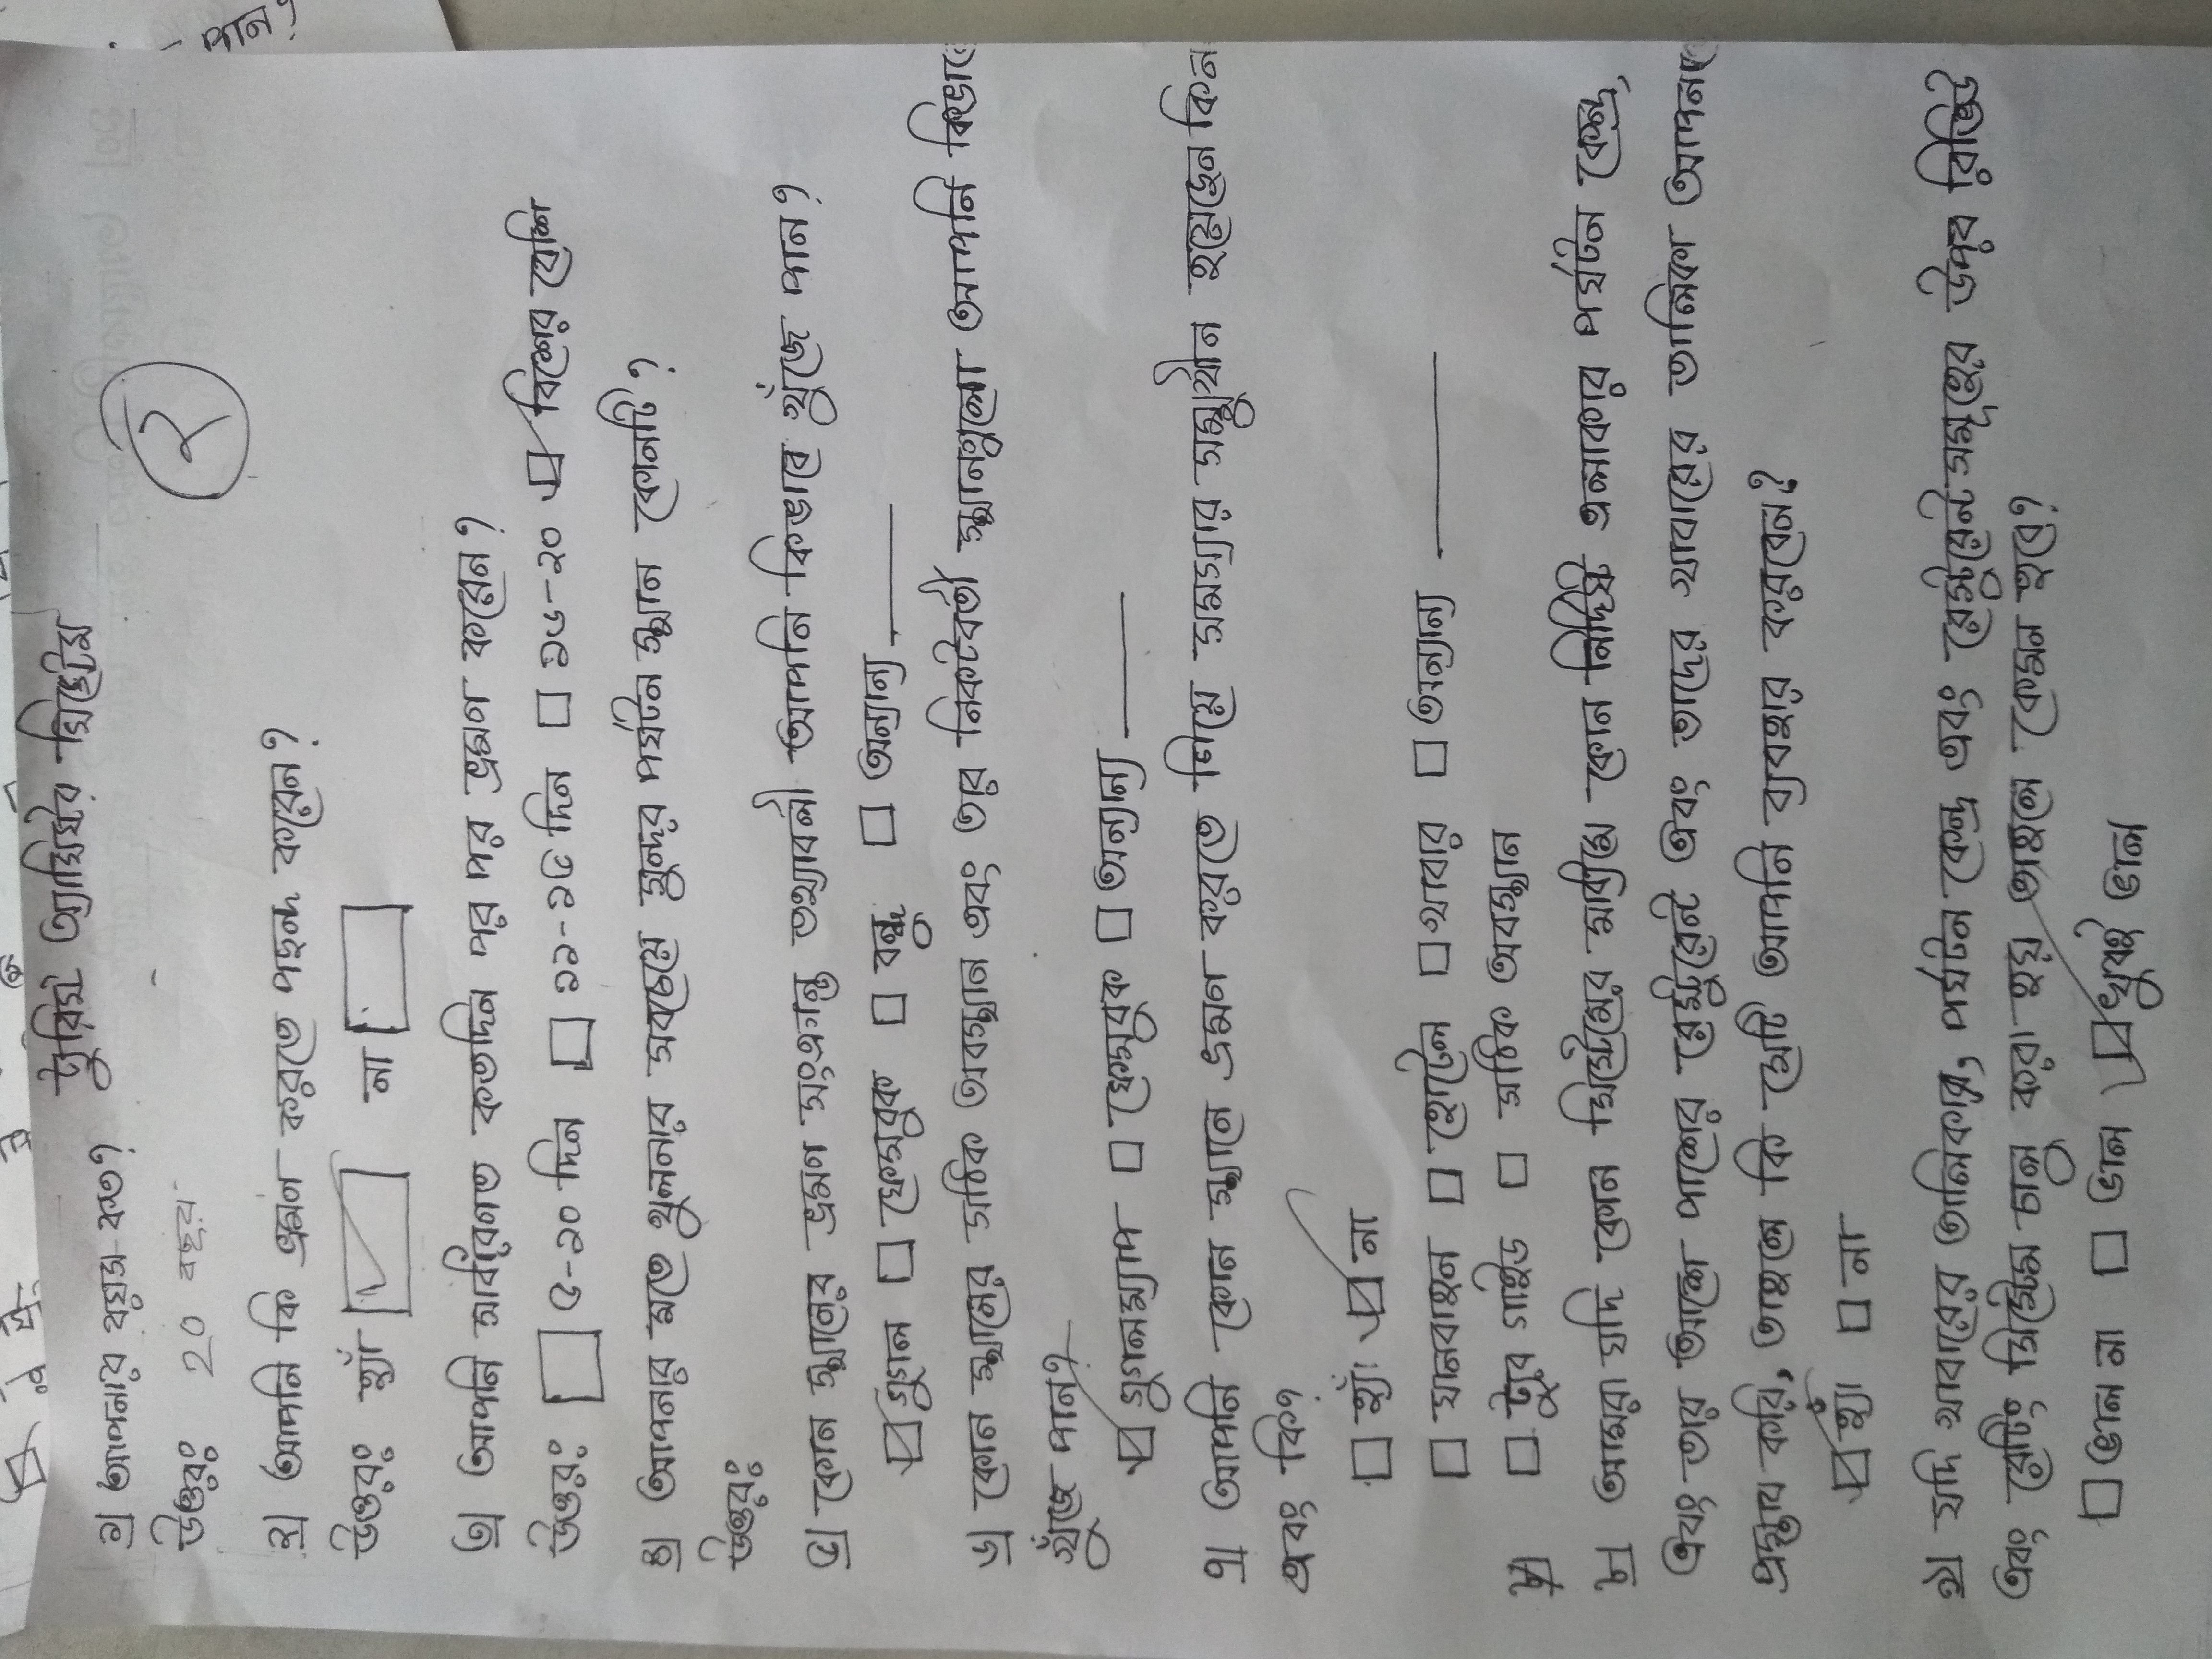 ট্যুরিস্ট অ্যাসিস্টর সিস্টেম
১) আপনার বয়স কত?
২
উত্তরঃ 20 বছর
২) আপনি কি ভ্রমণ করতে পছন্দ করেন?
উত্তরঃ হ্যাঁ না
৩) আপনি সাধারণত কতদিন পর পর ভ্রমণ করেন?
উত্তরঃ ৫-১০ দিন ১১-১৫ দিন ১৬-২০ বিশের বেশি
৪) আপনার মতে খুলনার সবচেয়ে সুন্দর পর্যটন স্থান কোনটি?
উত্তরঃ
৫) কোন স্থানের ভ্রমণ সংক্রান্ত তথ্যাবলী আপনি কিভাবে খুঁজে পান?
গুগল ফেসবুক বন্ধু অন্যান্য
৬) কোন স্থানের সঠিক অবস্থান এবং তার নিকটবর্তী স্থানগুলো আপনি কিভাবে
খুঁজে পান?
গুগলম্যাপ ফেসবুক অন্যান্য
৭) আপনি কোন স্থানে ভ্রমণ করতে গিয়ে সমস্যার সম্মুখীন হয়েছেন কিনা
এবং কি?
হ্যাঁ না
যানবাহন হোটেল খাবার অন্যান্য
ট্যুর গাইড সঠিক অবস্থান
৮) আমরা যদি কোন সিস্টেমের মাধ্যমে কোন নির্দিষ্ট এলাকার পর্যটন কেন্দ্র,
এবং তার আশে পাশের রেস্টুরেন্ট এবং তাদের খাবারের তালিকা
প্রস্তাব করি, তাহলে কি সেটি আপনি ব্যবহার করবেন?
হ্যাঁ না
৯) যদি খাবারের তালিকার, পর্যটন কেন্দ্র এবং রেস্টুরেন্টসমূহের উপর রিভিউ
এবং রেটিং সিস্টেম চালু করা হয় তাহলে কেমন হবে?
ভাল না ভাল খুবই ভাল
পান?